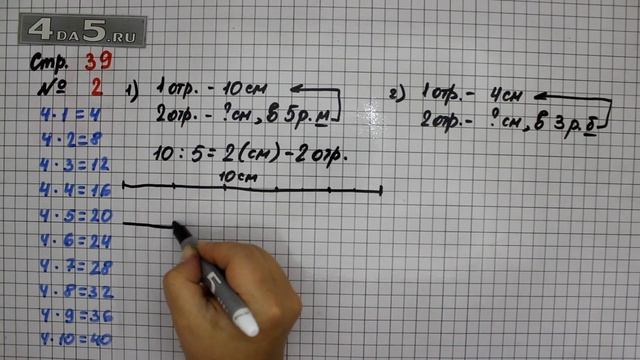 4DA5.RU
Стр. 39
№ 2
4·1=4
4·2=8
4·3=12
4·4=16
4·5=20
4·6=24
4·7=28
4·8=32
4·9=36
4·10=40
1) 1 отр. - 10 см
2 отр. - ? см, в 5 р. м
10 : 5 = 2 (см) - 2 отр.
10 см
2) 1 отр. - 4 см
2 отр. - ? см, в 3 р. б